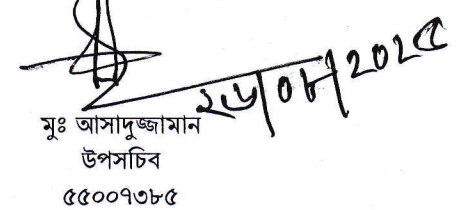 ২৬|০৮|২০২৫
মুঃ আসাদুজ্জামান
উপসচিব
৫৫০০৭৩৮৫